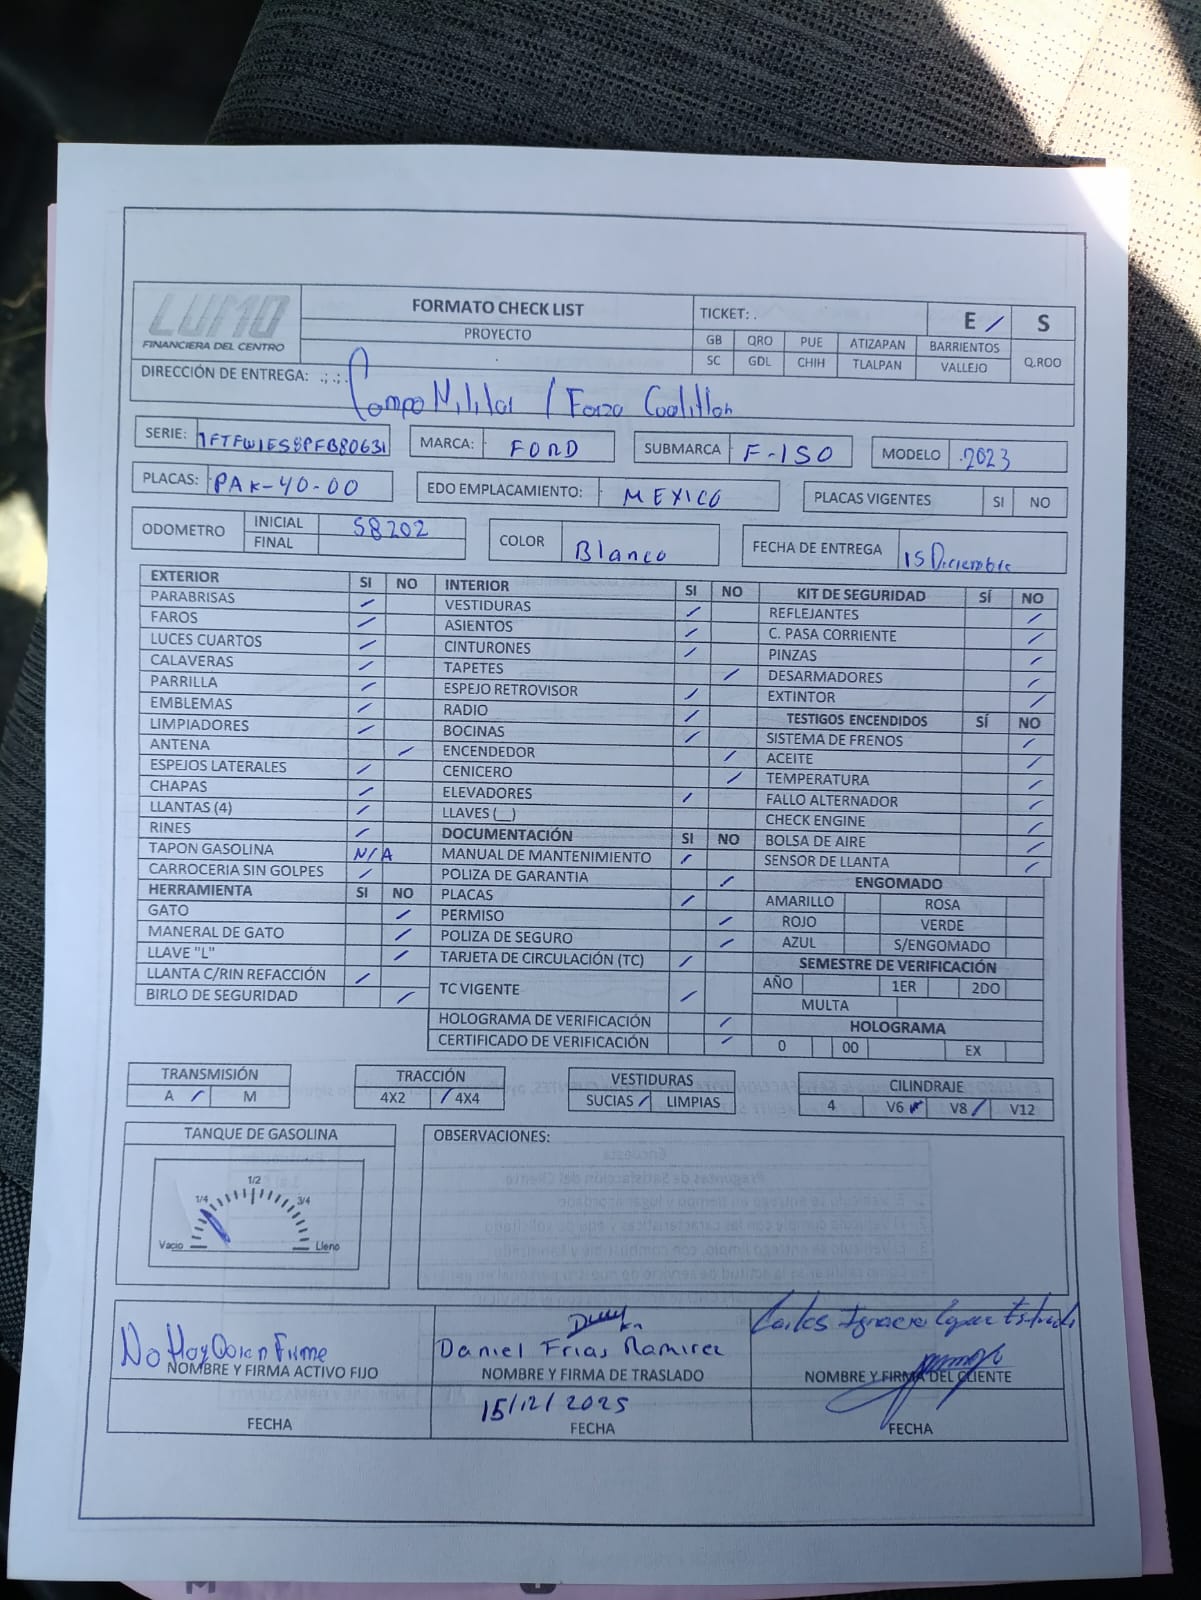 LUMO
FINANCIERA DEL CENTRO
FORMATO CHECK LIST
PROYECTO
TICKET: .
E /
S
GB QRO PUE ATIZAPAN BARRIENTOS
SC GDL CHIH TLALPAN VALLEJO Q.ROO
DIRECCIÓN DE ENTREGA: .;.;. Campo Militar / Forza Coatitlan
SERIE: 1FTFW1E58PFB80631 MARCA: FORD SUBMARCA F-150 MODELO .2023
PLACAS: PAK-40-00 EDO EMPLACAMIENTO: MEXICO PLACAS VIGENTES SI NO
ODOMETRO INICIAL 58202 COLOR Blanco FECHA DE ENTREGA 15 Diciembre
FINAL
EXTERIOR SI NO
PARABRISAS /
FAROS /
LUCES CUARTOS /
CALAVERAS /
PARRILLA /
EMBLEMAS /
LIMPIADORES /
ANTENA /
ESPEJOS LATERALES /
CHAPAS /
LLANTAS (4) /
RINES /
TAPON GASOLINA N/A
CARROCERIA SIN GOLPES /
HERRAMIENTA SI NO
GATO /
MANERAL DE GATO /
LLAVE "L" /
LLANTA C/RIN REFACCIÓN /
BIRLO DE SEGURIDAD /
INTERIOR SI NO
VESTIDURAS /
ASIENTOS /
CINTURONES /
TAPETES /
ESPEJO RETROVISOR /
RADIO /
BOCINAS /
ENCENDEDOR /
CENICERO /
ELEVADORES /
LLAVES (__)
DOCUMENTACIÓN SI NO
MANUAL DE MANTENIMIENTO /
POLIZA DE GARANTIA /
PLACAS /
PERMISO /
POLIZA DE SEGURO /
TARJETA DE CIRCULACIÓN (TC) /
TC VIGENTE /
HOLOGRAMA DE VERIFICACIÓN /
CERTIFICADO DE VERIFICACIÓN /
KIT DE SEGURIDAD SÍ NO
REFLEJANTES /
C. PASA CORRIENTE /
PINZAS /
DESARMADORES /
EXTINTOR /
TESTIGOS ENCENDIDOS SÍ NO
SISTEMA DE FRENOS /
ACEITE /
TEMPERATURA /
FALLO ALTERNADOR /
CHECK ENGINE /
BOLSA DE AIRE /
SENSOR DE LLANTA /
ENGOMADO
AMARILLO ROSA
ROJO VERDE
AZUL S/ENGOMADO
SEMESTRE DE VERIFICACIÓN
AÑO 1ER 2DO
MULTA
HOLOGRAMA
0 00 EX
TRANSMISIÓN
A / M
TRACCIÓN
4X2 / 4X4
VESTIDURAS
SUCIAS / LIMPIAS
CILINDRAJE
4 V6 V8 / V12
TANQUE DE GASOLINA
1/2
1/4 3/4
Vacio Lleno
OBSERVACIONES:
No Hay Quien Firme
NOMBRE Y FIRMA ACTIVO FIJO
FECHA
Daniel Frias Ramirez
NOMBRE Y FIRMA DE TRASLADO
15/12/2025
FECHA
Carlos Ignacio Lopez Estrada
NOMBRE Y FIRMA DEL CLIENTE
FECHA